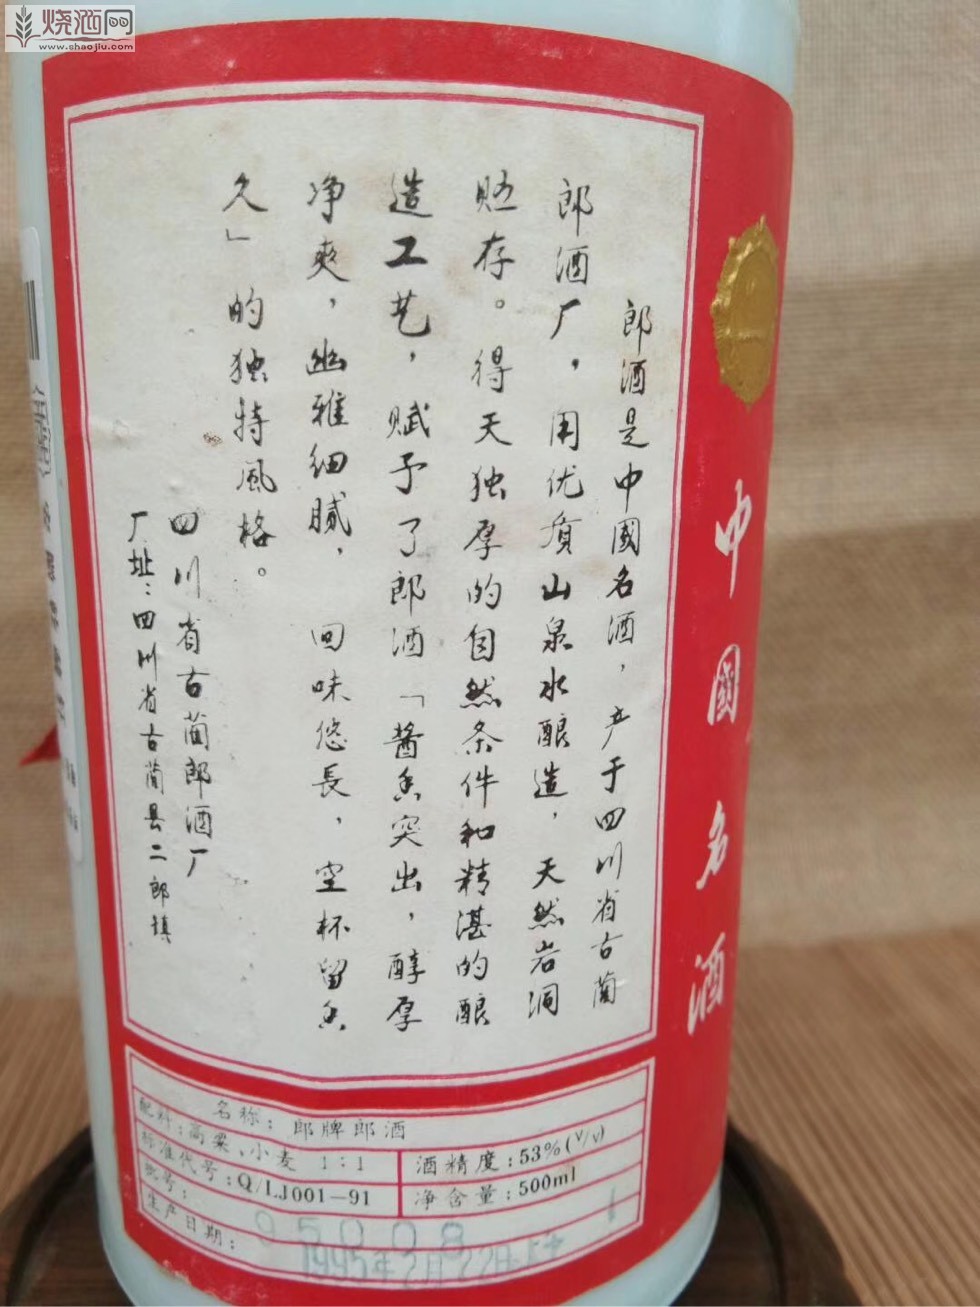 烧酒网
www.shaojiu.com
中國名酒
郎酒是中國名酒，产于四川省古蔺
郎酒厂，用优质山泉水酿造，天然岩洞
贮存。得天独厚的自然条件和精湛的酿
造工艺，赋予了郎酒「酱香突出，醇厚
净爽，幽雅细腻，回味悠長，空杯留香
久」的独特风格。
四川省古蔺郎酒厂
厂址：四川省古蔺县二郎镇
名称：郎牌郎酒
配料：高粱、小麦 1:1
酒精度：53%(v/v)
标准代号：Q/LJ001-91
净含量：500ml
批号：95008
生产日期：1995年2月22日